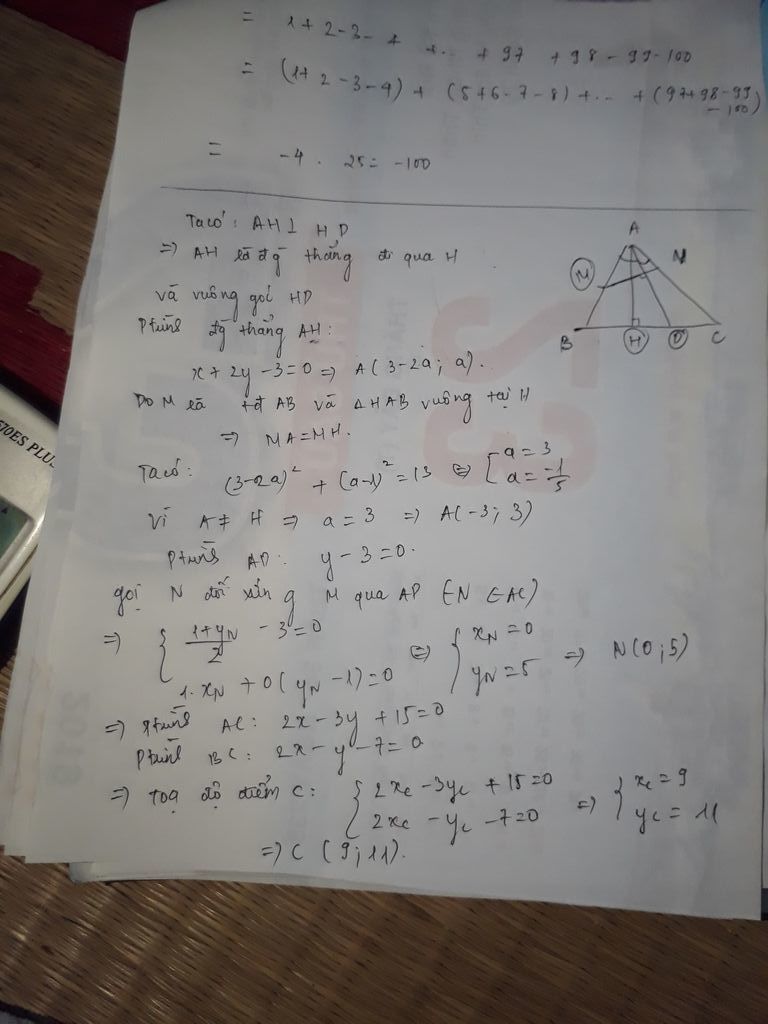 = 1 + 2 - 3 - 4 + ... + 97 + 98 - 99 - 100
= (1 + 2 - 3 - 4) + (5 + 6 - 7 - 8) + ... + (97 + 98 - 99 - 100)
= -4 . 25 = -100
Ta có : AH ⊥ HD
=> AH là đg thẳng đi qua H
và vuông góc HD
Ptrình đg thẳng AH :
x + 2y - 3 = 0 => A ( 3 - 2a ; a ) .
Do M là tđ AB và Δ HAB vuông tại H
=> MA = MH .
Ta có : (3 - 2a)² + (a - 1)² = 13 <=> [ a = 3
a = -1/5
Vì A ≠ H => a = 3 => A ( -3 ; 3 )
Ptrình AD : y - 3 = 0 .
gọi N đối xứng M qua AD (N ∈ AC)
=> { (1 + yN)/2 - 3 = 0 <=> { xN = 0 => N ( 0 ; 5 )
1 . xN + 0 ( yN - 1 ) = 0 yN = 5
=> Ptrình AC : 2x - 3y + 15 = 0
Ptrình BC : 2x - y - 7 = 0
=> Toạ độ điểm C : { 2xc - 3yc + 15 = 0 => { xc = 9
2xc - yc - 7 = 0 yc = 11
=> C ( 9 ; 11 ) .
A
M
N
B
H
D
C
570ES PLUS